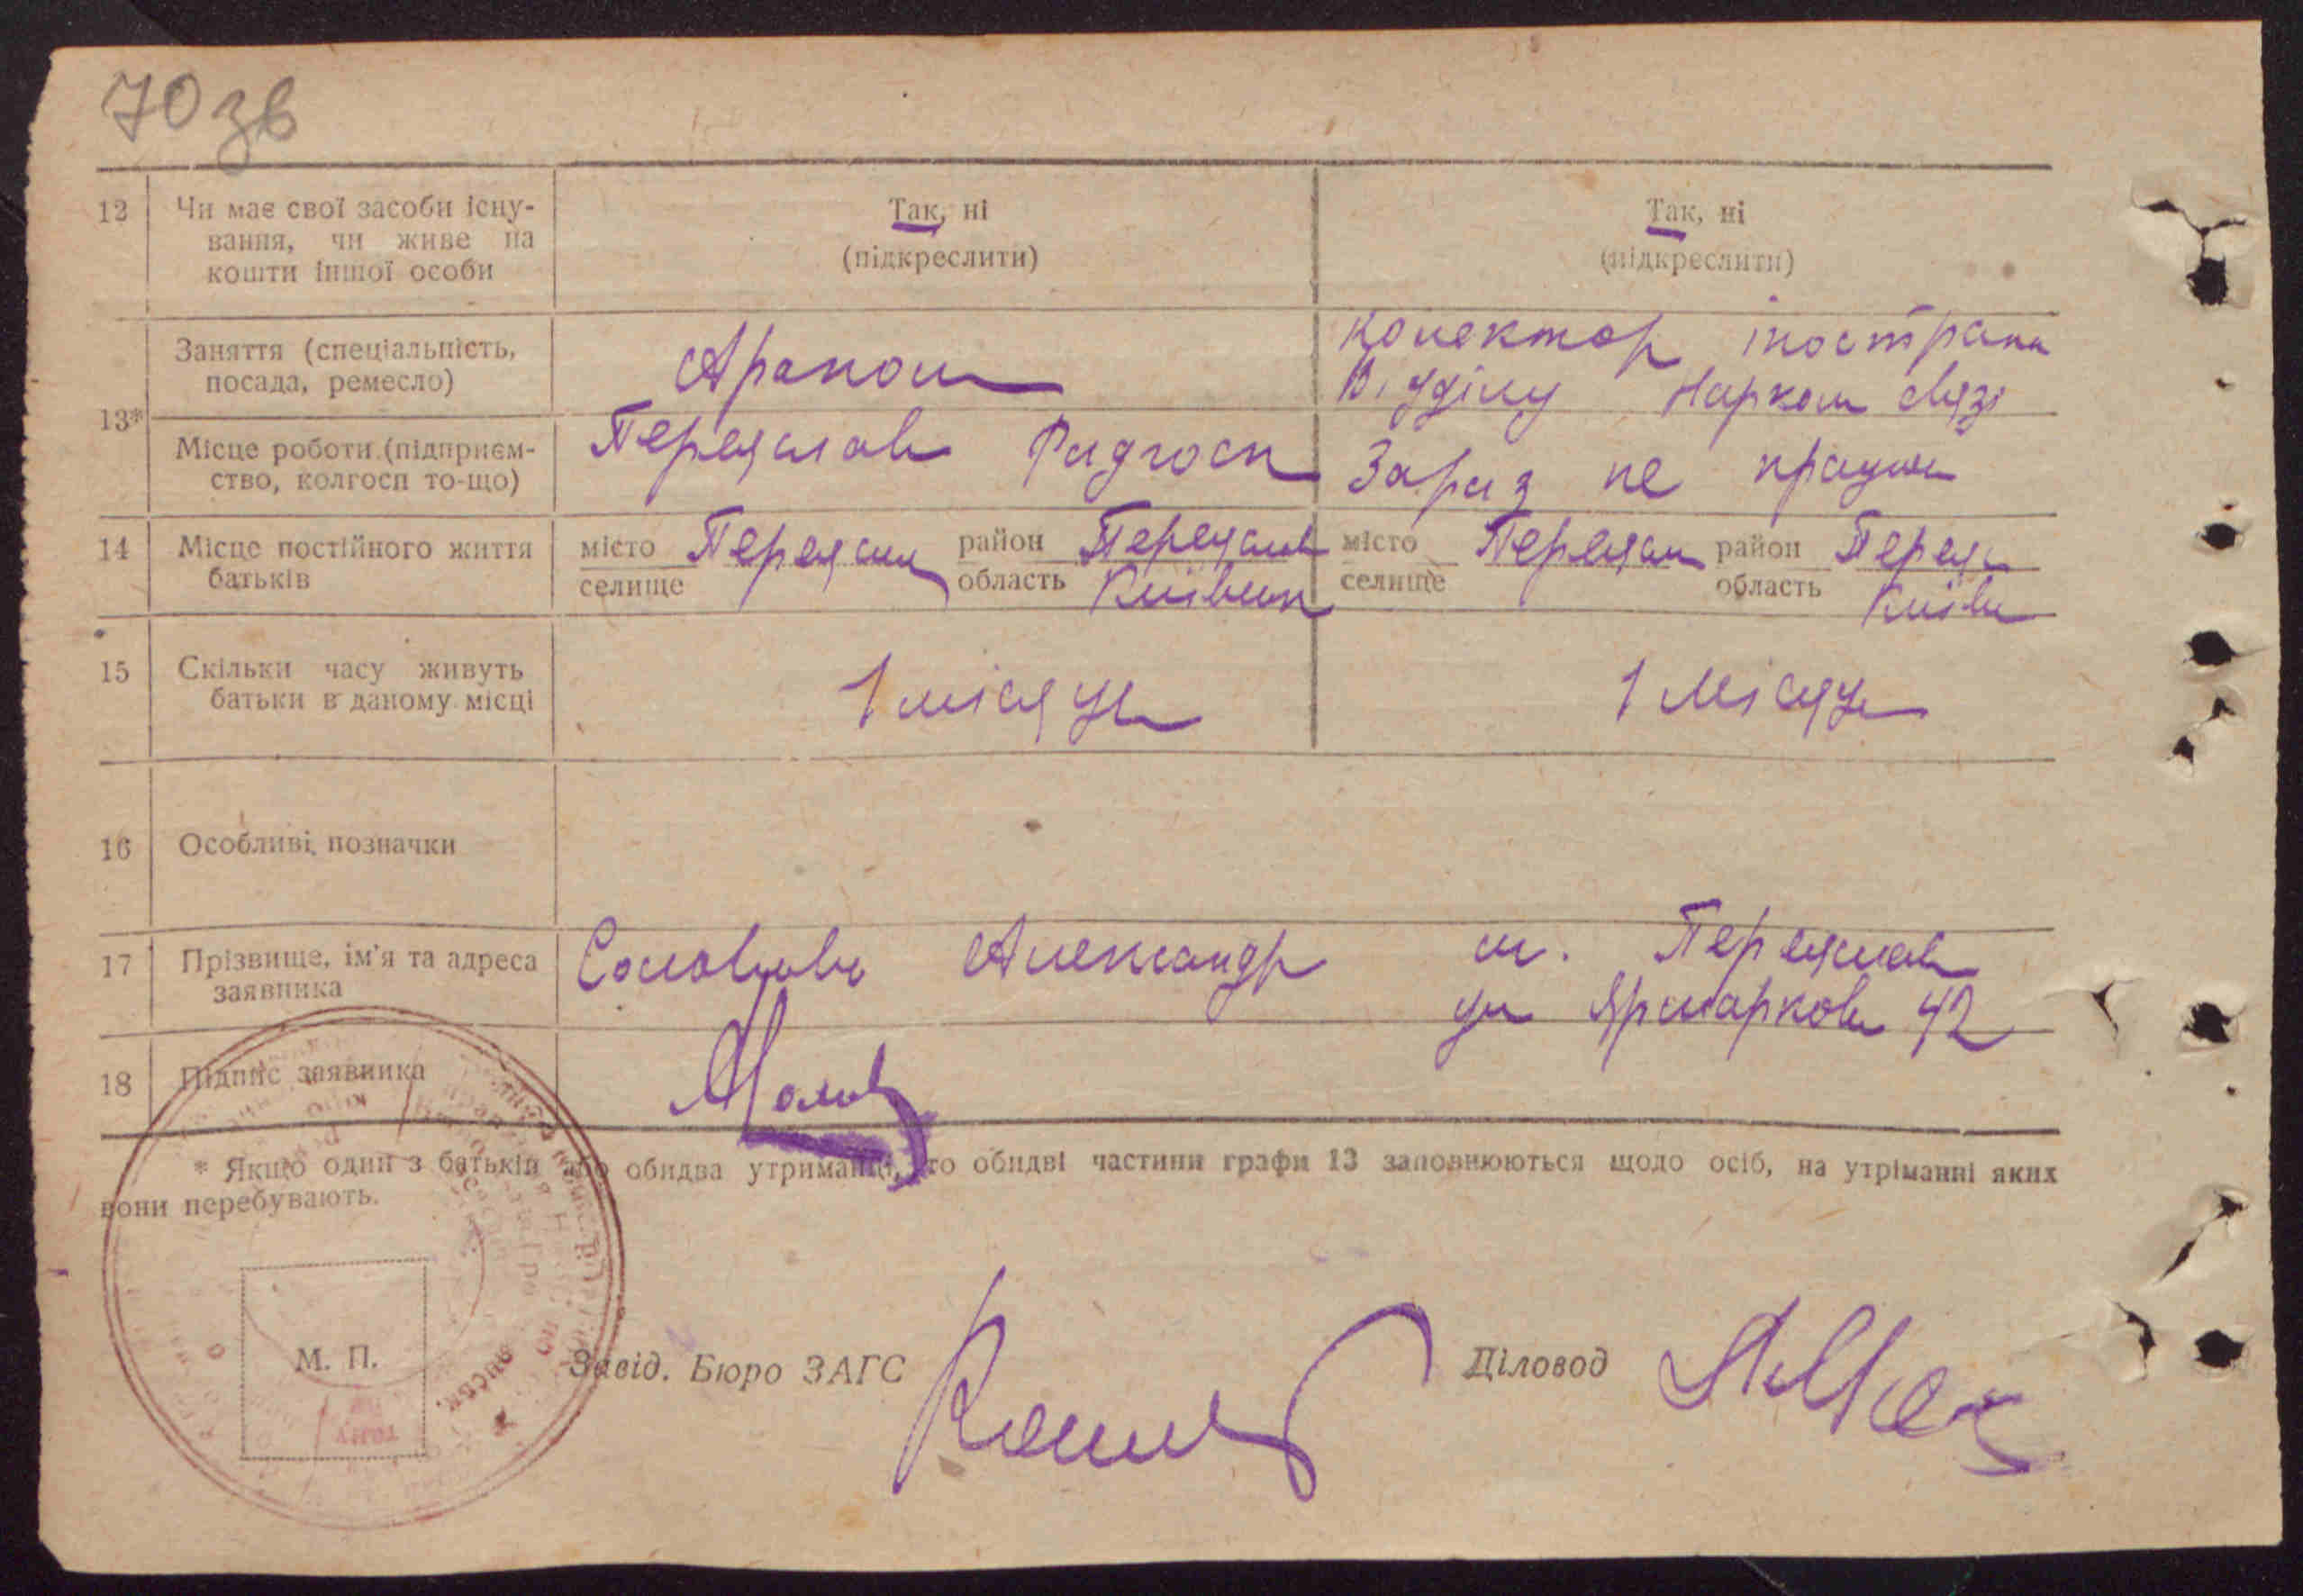 70 зв
12 Чи має свої засоби існу-
вання, чи живе на
кошти іншої особи
Так, ні
(підкреслити)
Так, ні
(підкреслити)
13*
Заняття (спеціальність,
посада, ремесло)
Агроном
колектор іностран
Відділу Нарком связі
Місце роботи (підприєм-
ство, колгосп то-що)
Переяслав Радгосп
Зараз не працює
14 Місце постійного життя
батьків
місто Переяслав район Переяслав
селище область Київськ
місто Переяслав район Переяс
селище область Київ
15 Скільки часу живуть
батьки в даному місці
1 місяць
1 місяць
16 Особливі позначки
17 Прізвище, ім'я та адреса
заявника
Соловьйов Александр м. Переяслав
ул Ярмаркова 42
18 Підпис заявника
* Якщо один з батьків або обидва утриманці, то обидві частини графи 13 заповнюються щодо осіб, на утріманні яких
вони перебувають.
М. П.
Завід. Бюро ЗАГС
Діловод